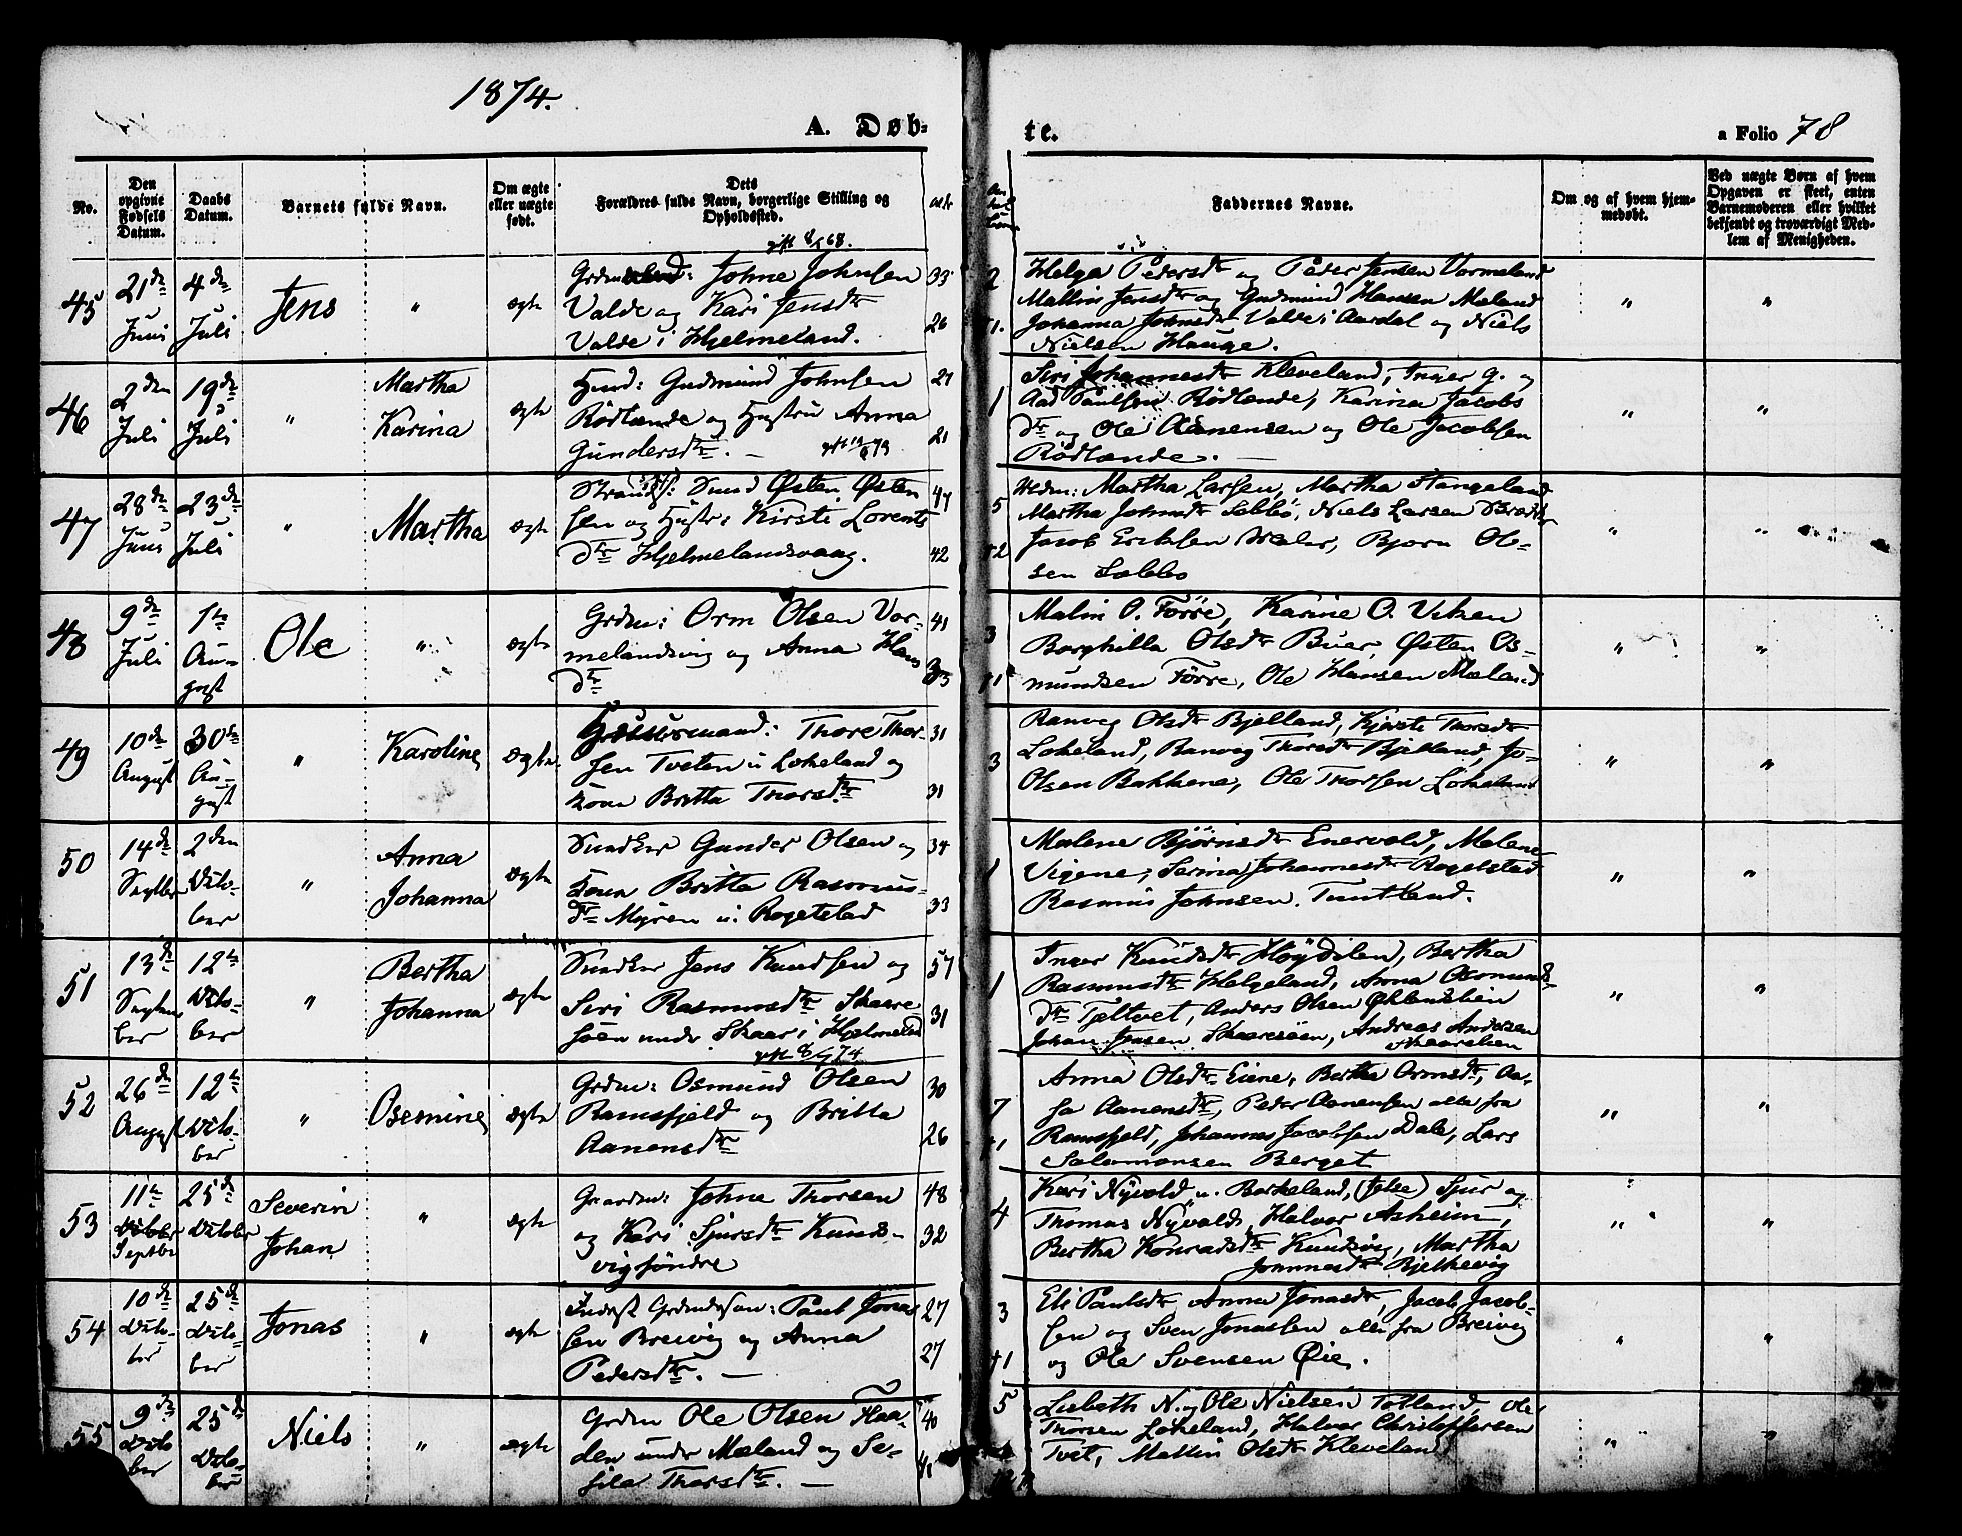 1874.
A. Døb-
te.
a Folio 78
No.
Den opgivne Fødsels Datum.
Daabs Datum.
Barnets fulde Navn.
Om ægte eller uægte født.
Dets Forældres fulde Navn, borgerlige Stilling og Opholdssted.
Faddernes Navne.
Om og af hvem hjem-
medøbt.
Ved uægte Børn af hvem Opgaven er skeet, enten Barnemoderen eller hvilket bekjendt og troværdigt Med-
lem af Menigheden.
45 21de Juni 4de Juli Jens " ægte
Johne Johnsen 33
Valde og Kari Jensdtr 26
Valde i Hjelmeland.
2
Helga Pedersdtr og Peder Jensen Vormeland
Mallin Jensdtr og Gudmund Hansen Meland
Johanna Johnsdtr Valde i Aardal og Niels
Nielsen Hauge.
" "
46 2den Juli 19de Juli " Martha Karina ægte
Gudmund Johnsen 21
Rødlænde og Hustru Anna 21
Gundersdtr. —
1
Siri Johannesdtr Kleveland, Inger G. og
Aad Paulsen Rødlænde, Karina Jacobs
dtr og Ole Aanensen og Ole Jacobsen
Rødlænde. —
" "
47 28de Juni 23de Juli " Martha ægte
Østen Østen 47
sen og Hustr: Kirste Lorents
dtr Hjelmelandsvaag. 42
5
Martha Larsen, Martha Stangeland
Martha Johnsdtr Sæbbø, Niels Larsen
Jacob Eriksen Bjørn Ol-
sen Sæbbø
" "
48 9de Juli 1ste August Ole " ægte
Grdm: Orm Olsen Vor- 41
melandsvig og Anna Hans
dtr
3
Malin O. Førre, Karine O. Viken
Borghilla Olsdtr Buer, Østen Os-
mundsen Førre, Ole Hansen Mæland
" "
49 10de August 30te August " Karoline ægte
Thore Thor- 31
sen Tveten u. Løkeland og
Kone Britta Thorsdtr 31
3
Ranveg Olsdtr Bjelland, Kjerste Thorsdtr
Løkeland, Ranveg Thorsdtr Bjelland, Jo-
Olsen Bakkene, Ole Thorsen Løkeland
" "
50 14de Septber 2den October " Anna Johanna ægte
Gunder Olsen og 34
Kone Britta Rasmus-
dtr Myren u. Rogelstad 33
1
Malene Bjørnsdtr Enervold, Malene
Vigene, Serina Johannesdtr Rogelstad
Rasmus Johnsen Tuntland.
" "
51 13de September 12te October " Bertha Johanna ægte
Jens Knudsen og 57
Siri Rasmusdtr Skaare- 31
søen under Skaar i Hjelmeland
1
Inger Knudsdtr Høydilen, Bertha
Rasmusdtr Helgeland, Anna Osmunds
dtr Tjeltvet, Anders Olsen
Johan Jensen Skaaresøen, Andreas Andersen
Skaarelien
" "
gift 8/4 74
52 26de August 12te October " Osemine ægte
Grdm: Osmund Olsen 30
Ramsfjeld og Britta
Aanensdtr 26
Anna Olsdtr Eiene, Bertha Ormsdtr, Aa-
sa Aanensdtr, Peder Aanensen alle fra
Ramsfjeld, Johannes Jacobsen Dale, Lars
Salomonsen Berget
" "
53 11te Septbr 25de October Severin Johan " ægte
Gaardm: Johne Thorsen 48
og Kari Sjursdtr Knuds- 32
vig søndre
4
Kari Nyvold u. Barkeland, (Jelse) Sjur og
Thomas Nyvold, Halvor Asheim,
Bertha Konradsdtr Knudsvig, Martha
Johannesdtr Bjelkevig
" "
54 10de October 25de October Jonas " ægte
Inderst Grdmdssøn: Paul Jonas 27
sen Breivig og Anna
Pedersdtr. — 27
3 +1
Eli Paulsdtr, Anna Jonasdtr, Jacob Jacob-
sen og Sven Jonassen alle fra Breivig
og Ole Svensen Øie.
" "
55 9de October 25de October Niels " ægte
Grdm Ole Olsen Haa- 40
den under Mæland og Se-
sile Thorsdtr. — 41
5
Lisbeth N. og Ole Nielsen Totland, Ole
Thorsen Løkeland, Halvor Christoffersen
Tvet, Mallin Olsdtr Kleveland
" "